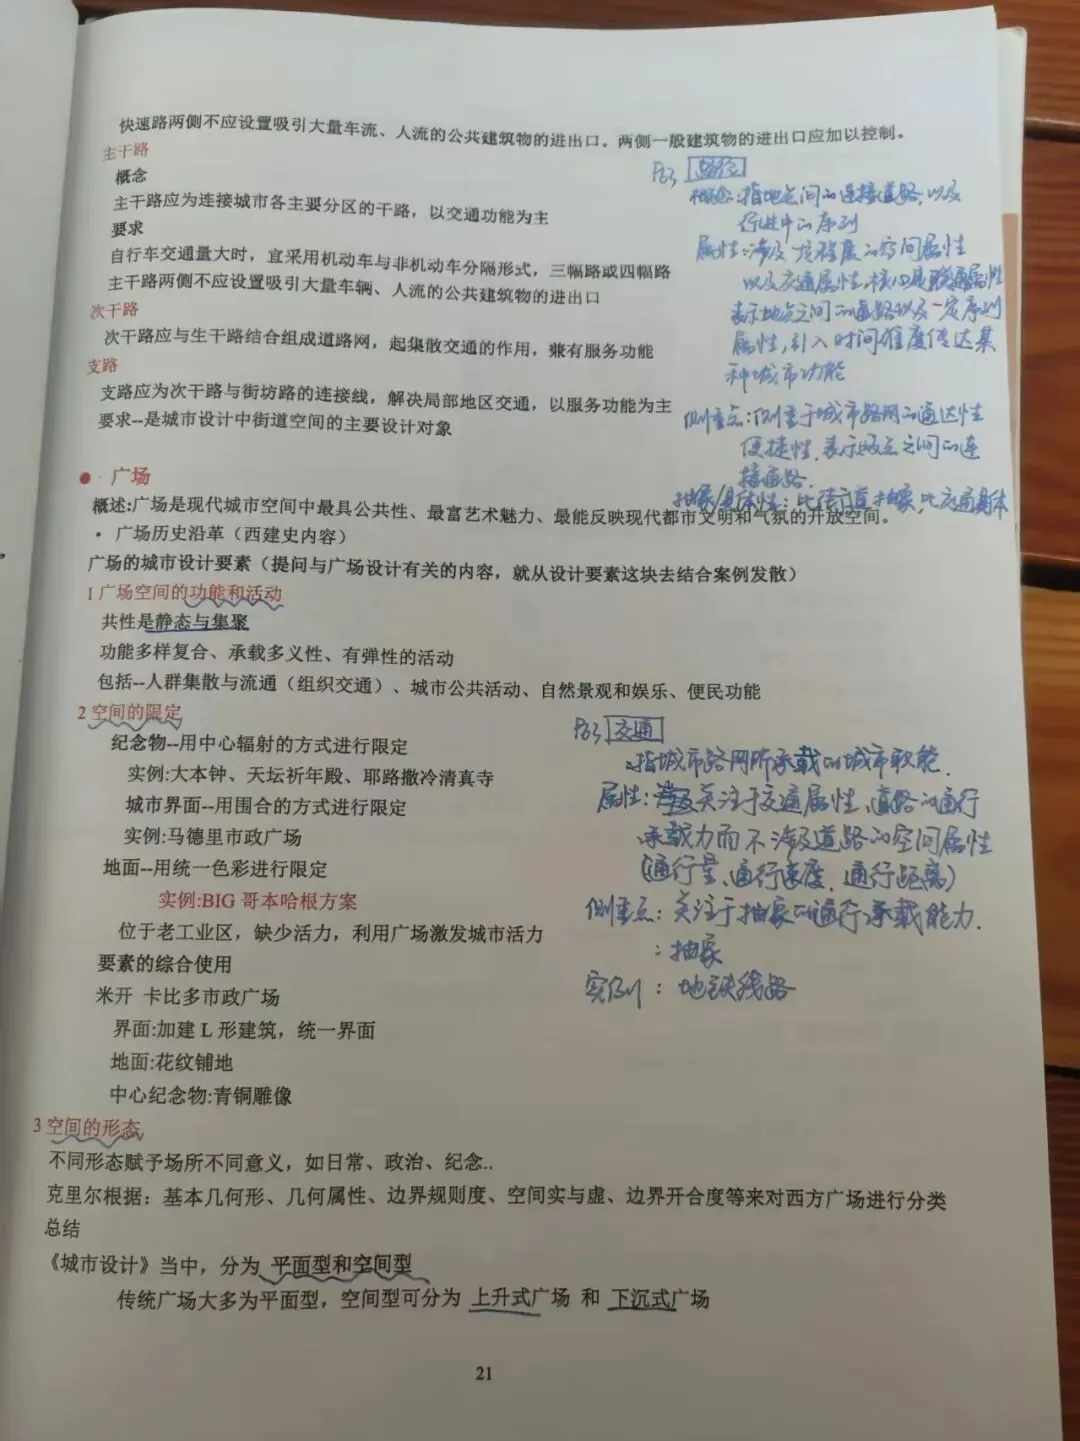 快速路两侧不应设置吸引大量车流、人流的公共建筑物的进出口。两侧一般建筑物的进出口应加以控制。
主干路
概念
主干路应为连接城市各主要分区的干路，以交通功能为主
要求
自行车交通量大时，宜采用机动车与非机动车分隔形式，三幅路或四幅路
主干路两侧不应设置吸引大量车辆、人流的公共建筑物的进出口
次干路
次干路应与生干路结合组成道路网，起集散交通的作用，兼有服务功能
支路
支路应为次干路与街坊路的连接线，解决局部地区交通，以服务功能为主
要求--是城市设计中街道空间的主要设计对象
P63 路径
概念：指地点间的连接道路，以及
行进中的序列
属性：涉及一定程度的空间属性
以及交通属性，核心是联通属性
表示地点之间的道路以及一定序列
属性，引入时间维度传达某
种城市功能
侧重点：侧重于城市路网的通达性
便捷性，表示地点之间的连
接道路．
抽象/具体性：比街道抽象，比交通具体
● · 广场
概述:广场是现代城市空间中最具公共性、最富艺术魅力、最能反映现代都市文明和气氛的开放空间。
• 广场历史沿革（西建史内容）
广场的城市设计要素（提问与广场设计有关的内容，就从设计要素这块去结合案例发散）
1 广场空间的功能和活动
共性是静态与集聚
功能多样复合、承载多义性、有弹性的活动
包括--人群集散与流通（组织交通）、城市公共活动、自然景观和娱乐、便民功能
2 空间的限定
纪念物--用中心辐射的方式进行限定
实例:大本钟、天坛祈年殿、耶路撒冷清真寺
城市界面--用围合的方式进行限定
实例:马德里市政广场
地面--用统一色彩进行限定
实例:BIG 哥本哈根方案
位于老工业区，缺少活力，利用广场激发城市活力
要素的综合使用
米开 卡比多市政广场
界面:加建 L 形建筑，统一界面
地面:花纹铺地
中心纪念物:青铜雕像
P63 交通
指城市路网所承载的城市职能．
属性：关注于交通属性、道路的通行
承载力而不涉及道路的空间属性
（通行量、通行速度、通行距离）
侧重点：关注于抽象的通行承载能力．
：抽象
实例：地铁线路
3 空间的形态
不同形态赋予场所不同意义，如日常、政治、纪念..
克里尔根据：基本几何形、几何属性、边界规则度、空间实与虚、边界开合度等来对西方广场进行分类
总结
《城市设计》当中，分为 平面型和空间型
传统广场大多为平面型，空间型可分为 上升式广场 和 下沉式广场
21